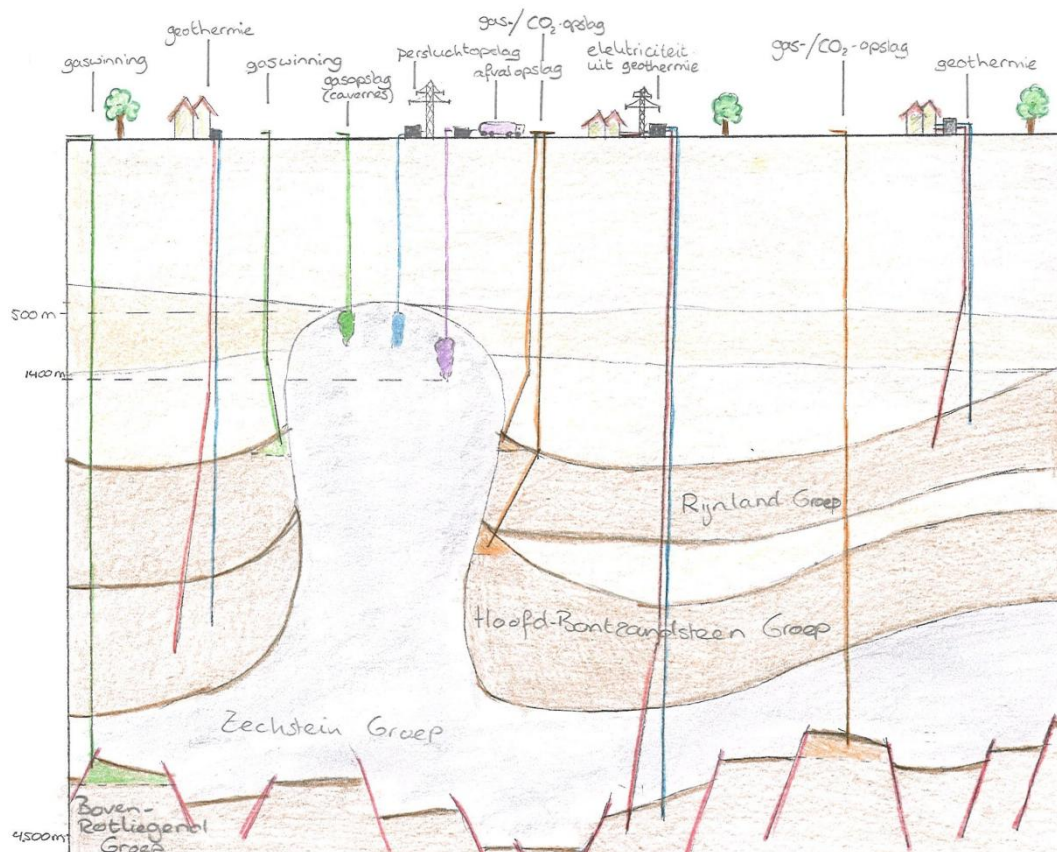 gaswinning
geothermie
gaswinning
gasopslag
(cavernes)
persluchtopslag
afvalopslag
gas-/CO₂-opslag
elektriciteit
uit geothermie
gas-/CO₂-opslag
geothermie
500m
1400m
Rijnland Groep
Hoofd-Bontzandsteen Groep
Zechstein Groep
Boven-
Rotliegend
Groep
4500m